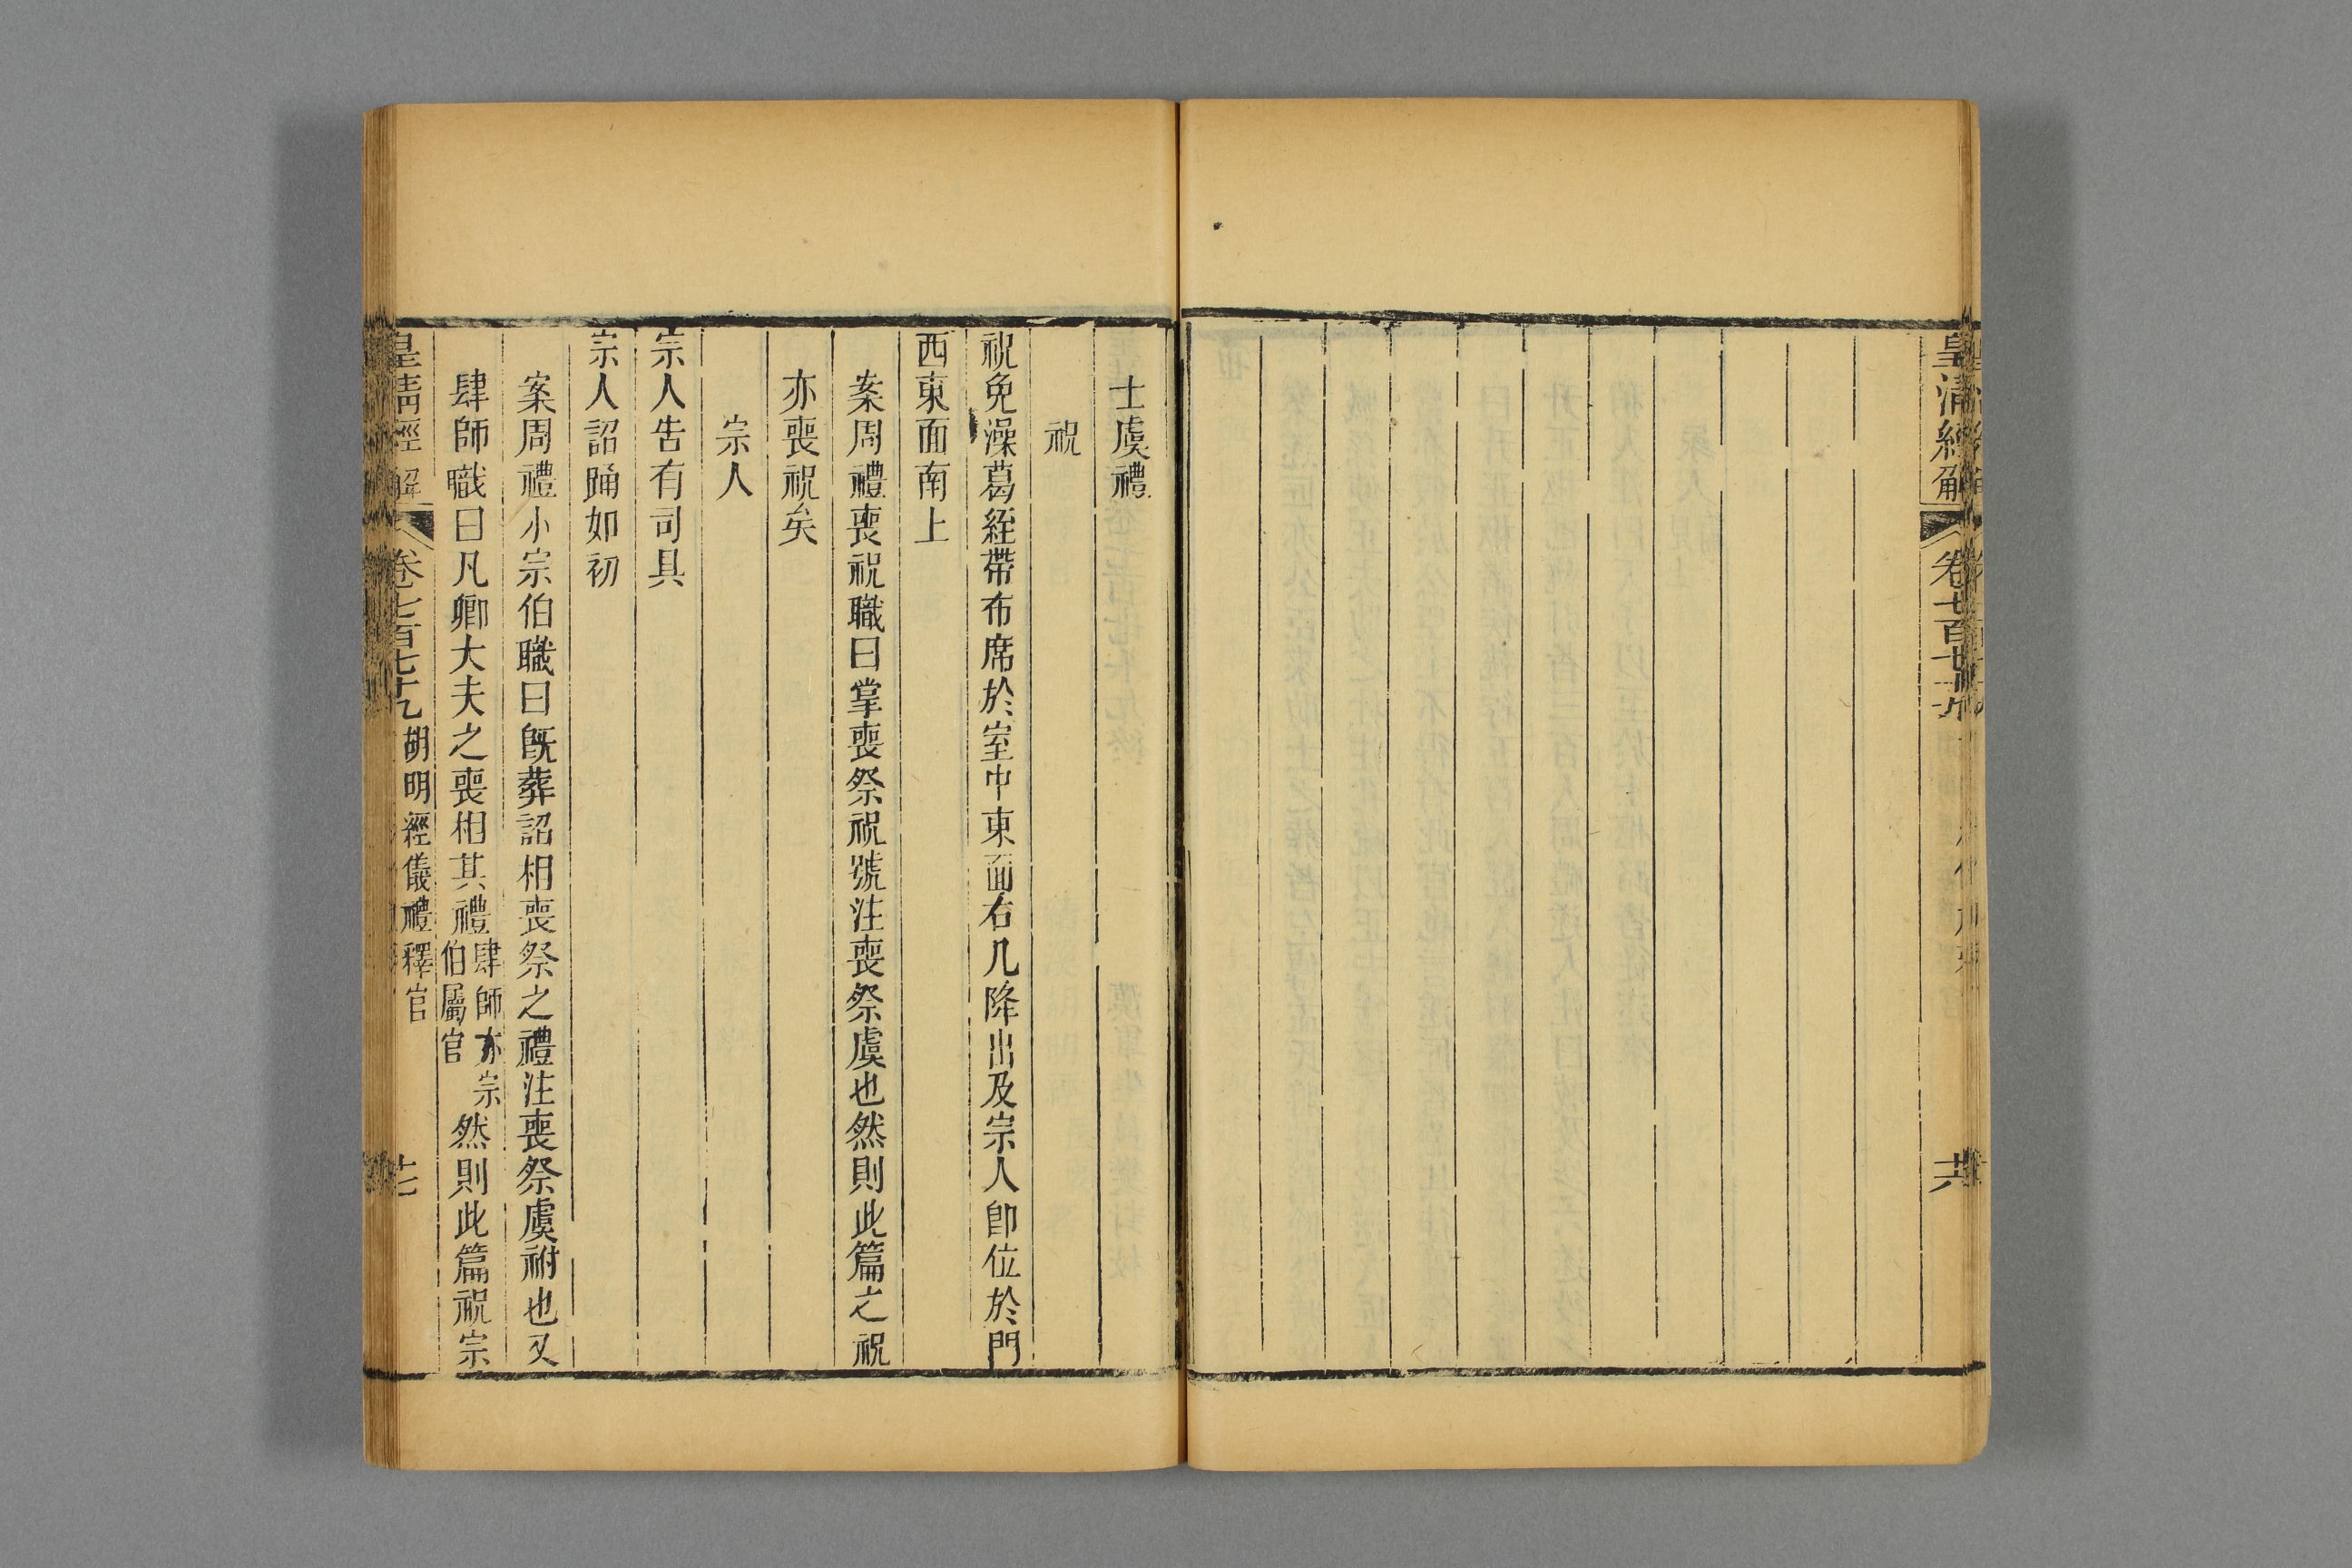 皇清經解
卷七百七十九
士虞禮
祝
祝免澡葛絰帶布席於室中東面右几降出及宗人卽位於門
西東面南上
案周禮喪祝職曰掌喪祭祝號注喪祭虞也然則此篇之祝
亦喪祝矣
宗人
宗人告有司具
宗人詔踊如初
案周禮小宗伯職曰旣葬詔相喪祭之禮注喪祭虞祔也又
肆師職曰凡卿大夫之喪相其禮肆師亦宗伯屬官然則此篇祝宗
皇清經解
卷七百七十九
胡明經儀禮釋官